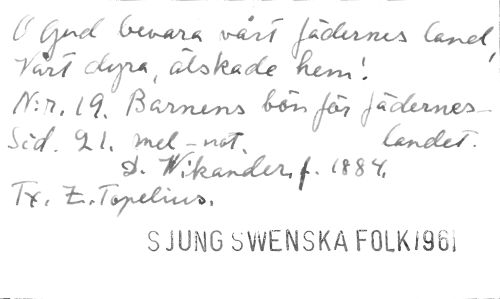 O Gud bevara vårt fädernes land,
Vårt dyra, älskade hem!
N:r. 19. Barnens bön för fädernes-
landet.
Sid. 21. mel-not.
D. Wikander, f. 1884.
Tx. Z. Topelius.
SJUNG SWENSKA FOLK 1961